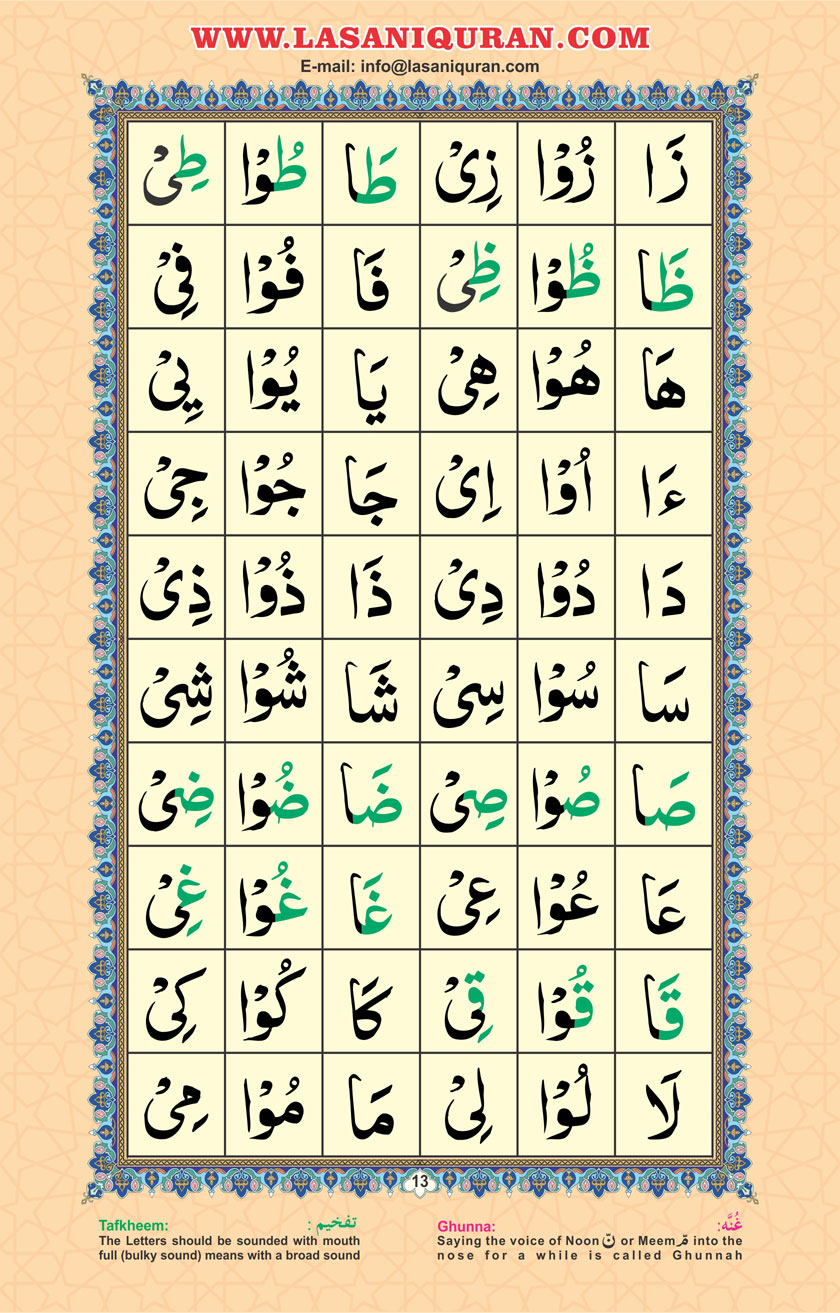 WWW.LASANIQURAN.COM
E-mail: info@lasaniquran.com
زَا زُوْا زِیْ طَا طُوْا طِیْ
ظَا ظُوْا ظِیْ فَا فُوْا فِیْ
هَا هُوْا هِیْ يَا يُوْا يِیْ
ءَا اُوْا اِیْ جَا جُوْا جِیْ
دَا دُوْا دِیْ ذَا ذُوْا ذِیْ
سَا سُوْا سِیْ شَا شُوْا شِیْ
صَا صُوْا صِیْ ضَا ضُوْا ضِیْ
عَا عُوْا عِیْ غَا غُوْا غِیْ
قَا قُوْا قِیْ كَا كُوْا كِیْ
لَا لُوْا لِیْ مَا مُوْا مِیْ
13
Tafkheem: تفخیم :
The Letters should be sounded with mouth
full (bulky sound) means with a broad sound
Ghunna: غُنَّه:
Saying the voice of Noon نّ or Meem مّ into the
nose for a while is called Ghunnah